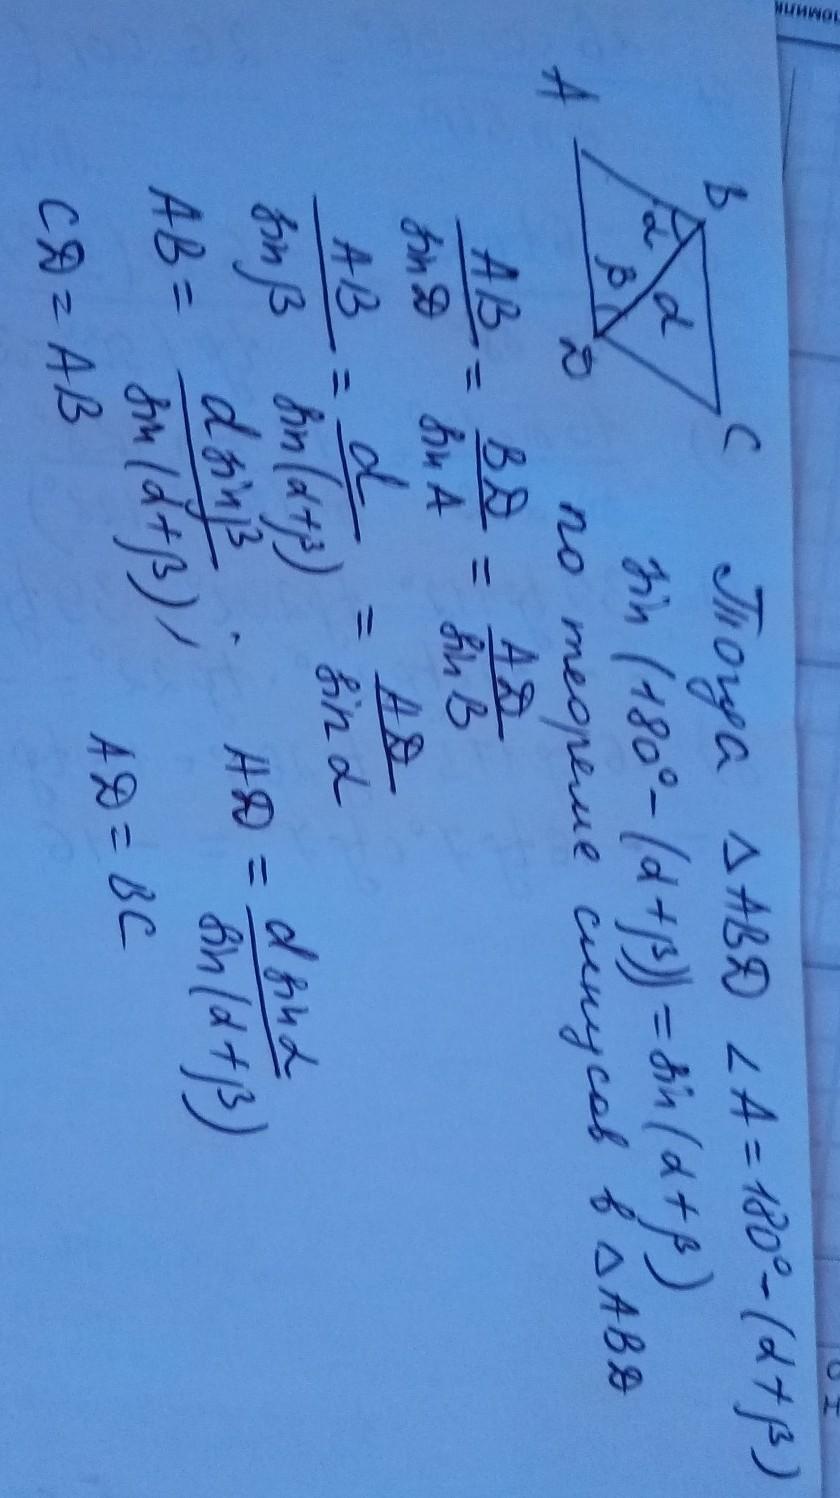 B C
α d
β
A D
Тогда △ABD ∠A = 180° - (α + β)
sin (180° - (α + β)) = sin (α + β)
по теореме синусов в △ABD
AB/sin D = BD/sin A = AD/sin B
AB/sin β = d/sin(α+β) = AD/sin α
AB = d sin β/sin(α+β), AD = d sin α/sin(α+β)
CD = AB AD = BC